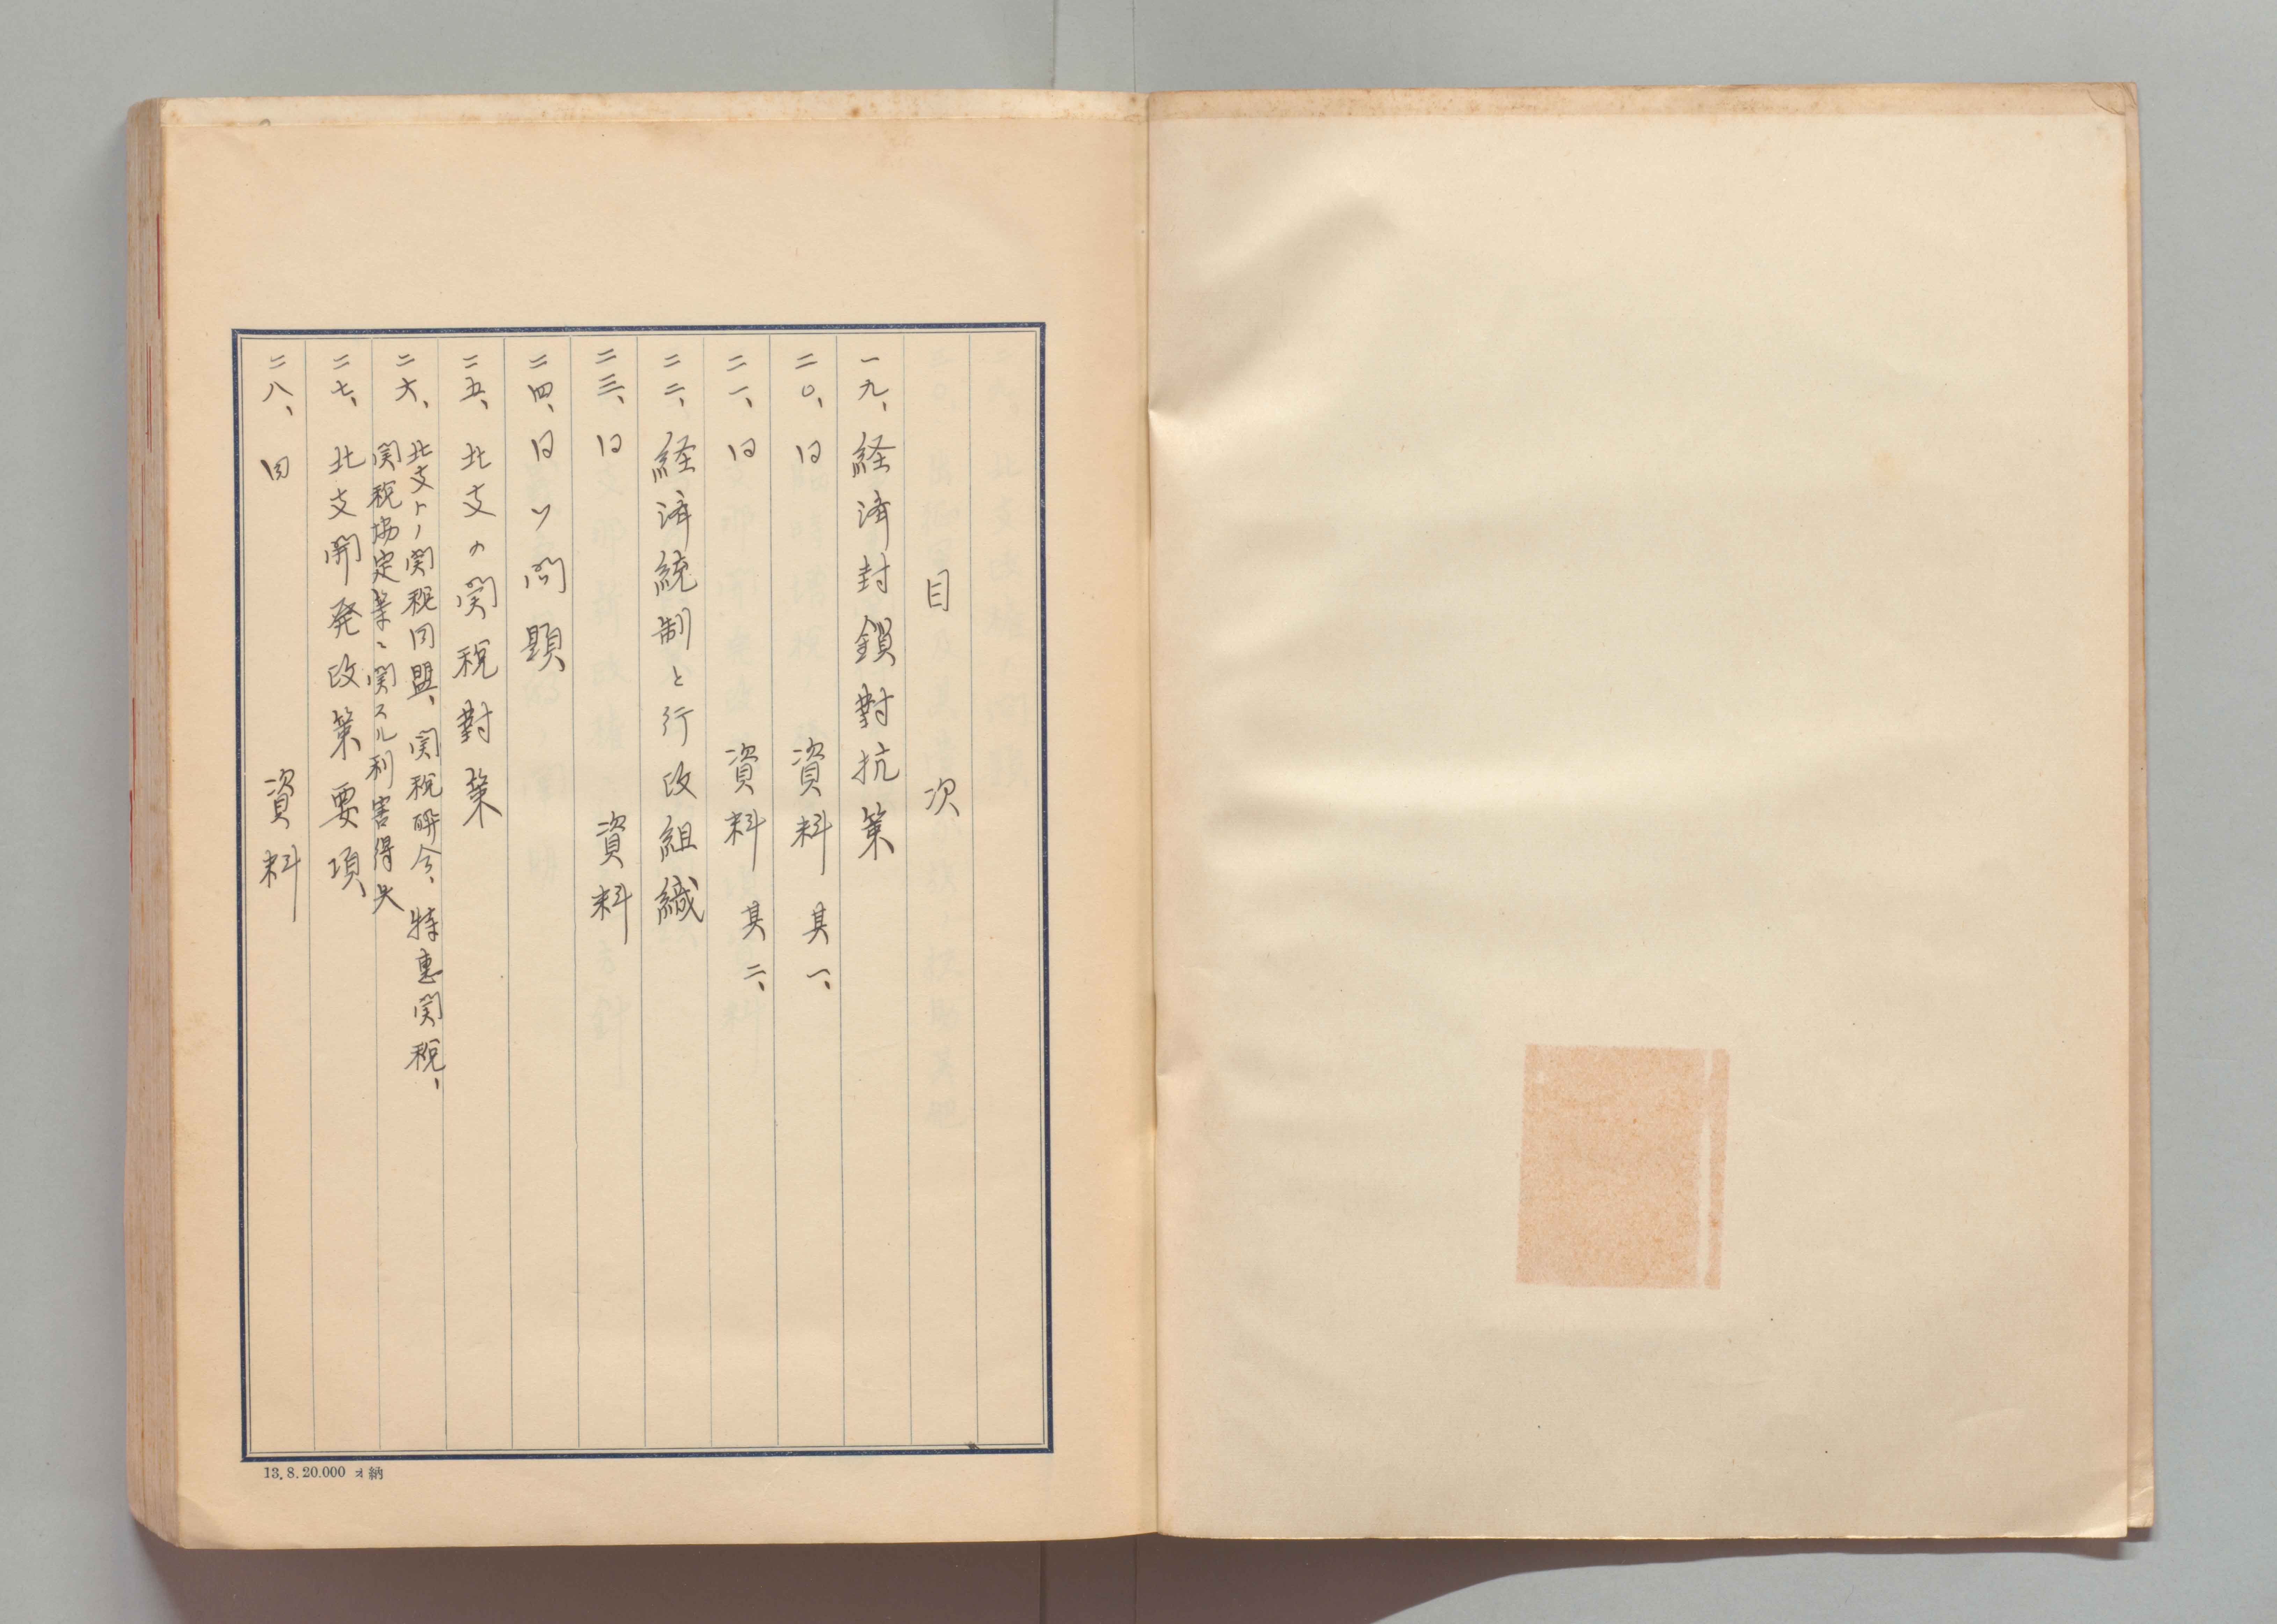 目次
一九、経済封鎖對抗策
二〇、同 資料 其一、
二一、同 資料 其二、
二二、経済統制と行政組織
二三、同 資料
二四、日ソ問題
二五、北支の関税對策
二六、北支トノ関税同盟、関税聯合、特惠関税、
関税協定等ニ関スル利害得失
二七、北支開発政策要項
二八、同 資料
13.8.20.000 オ納